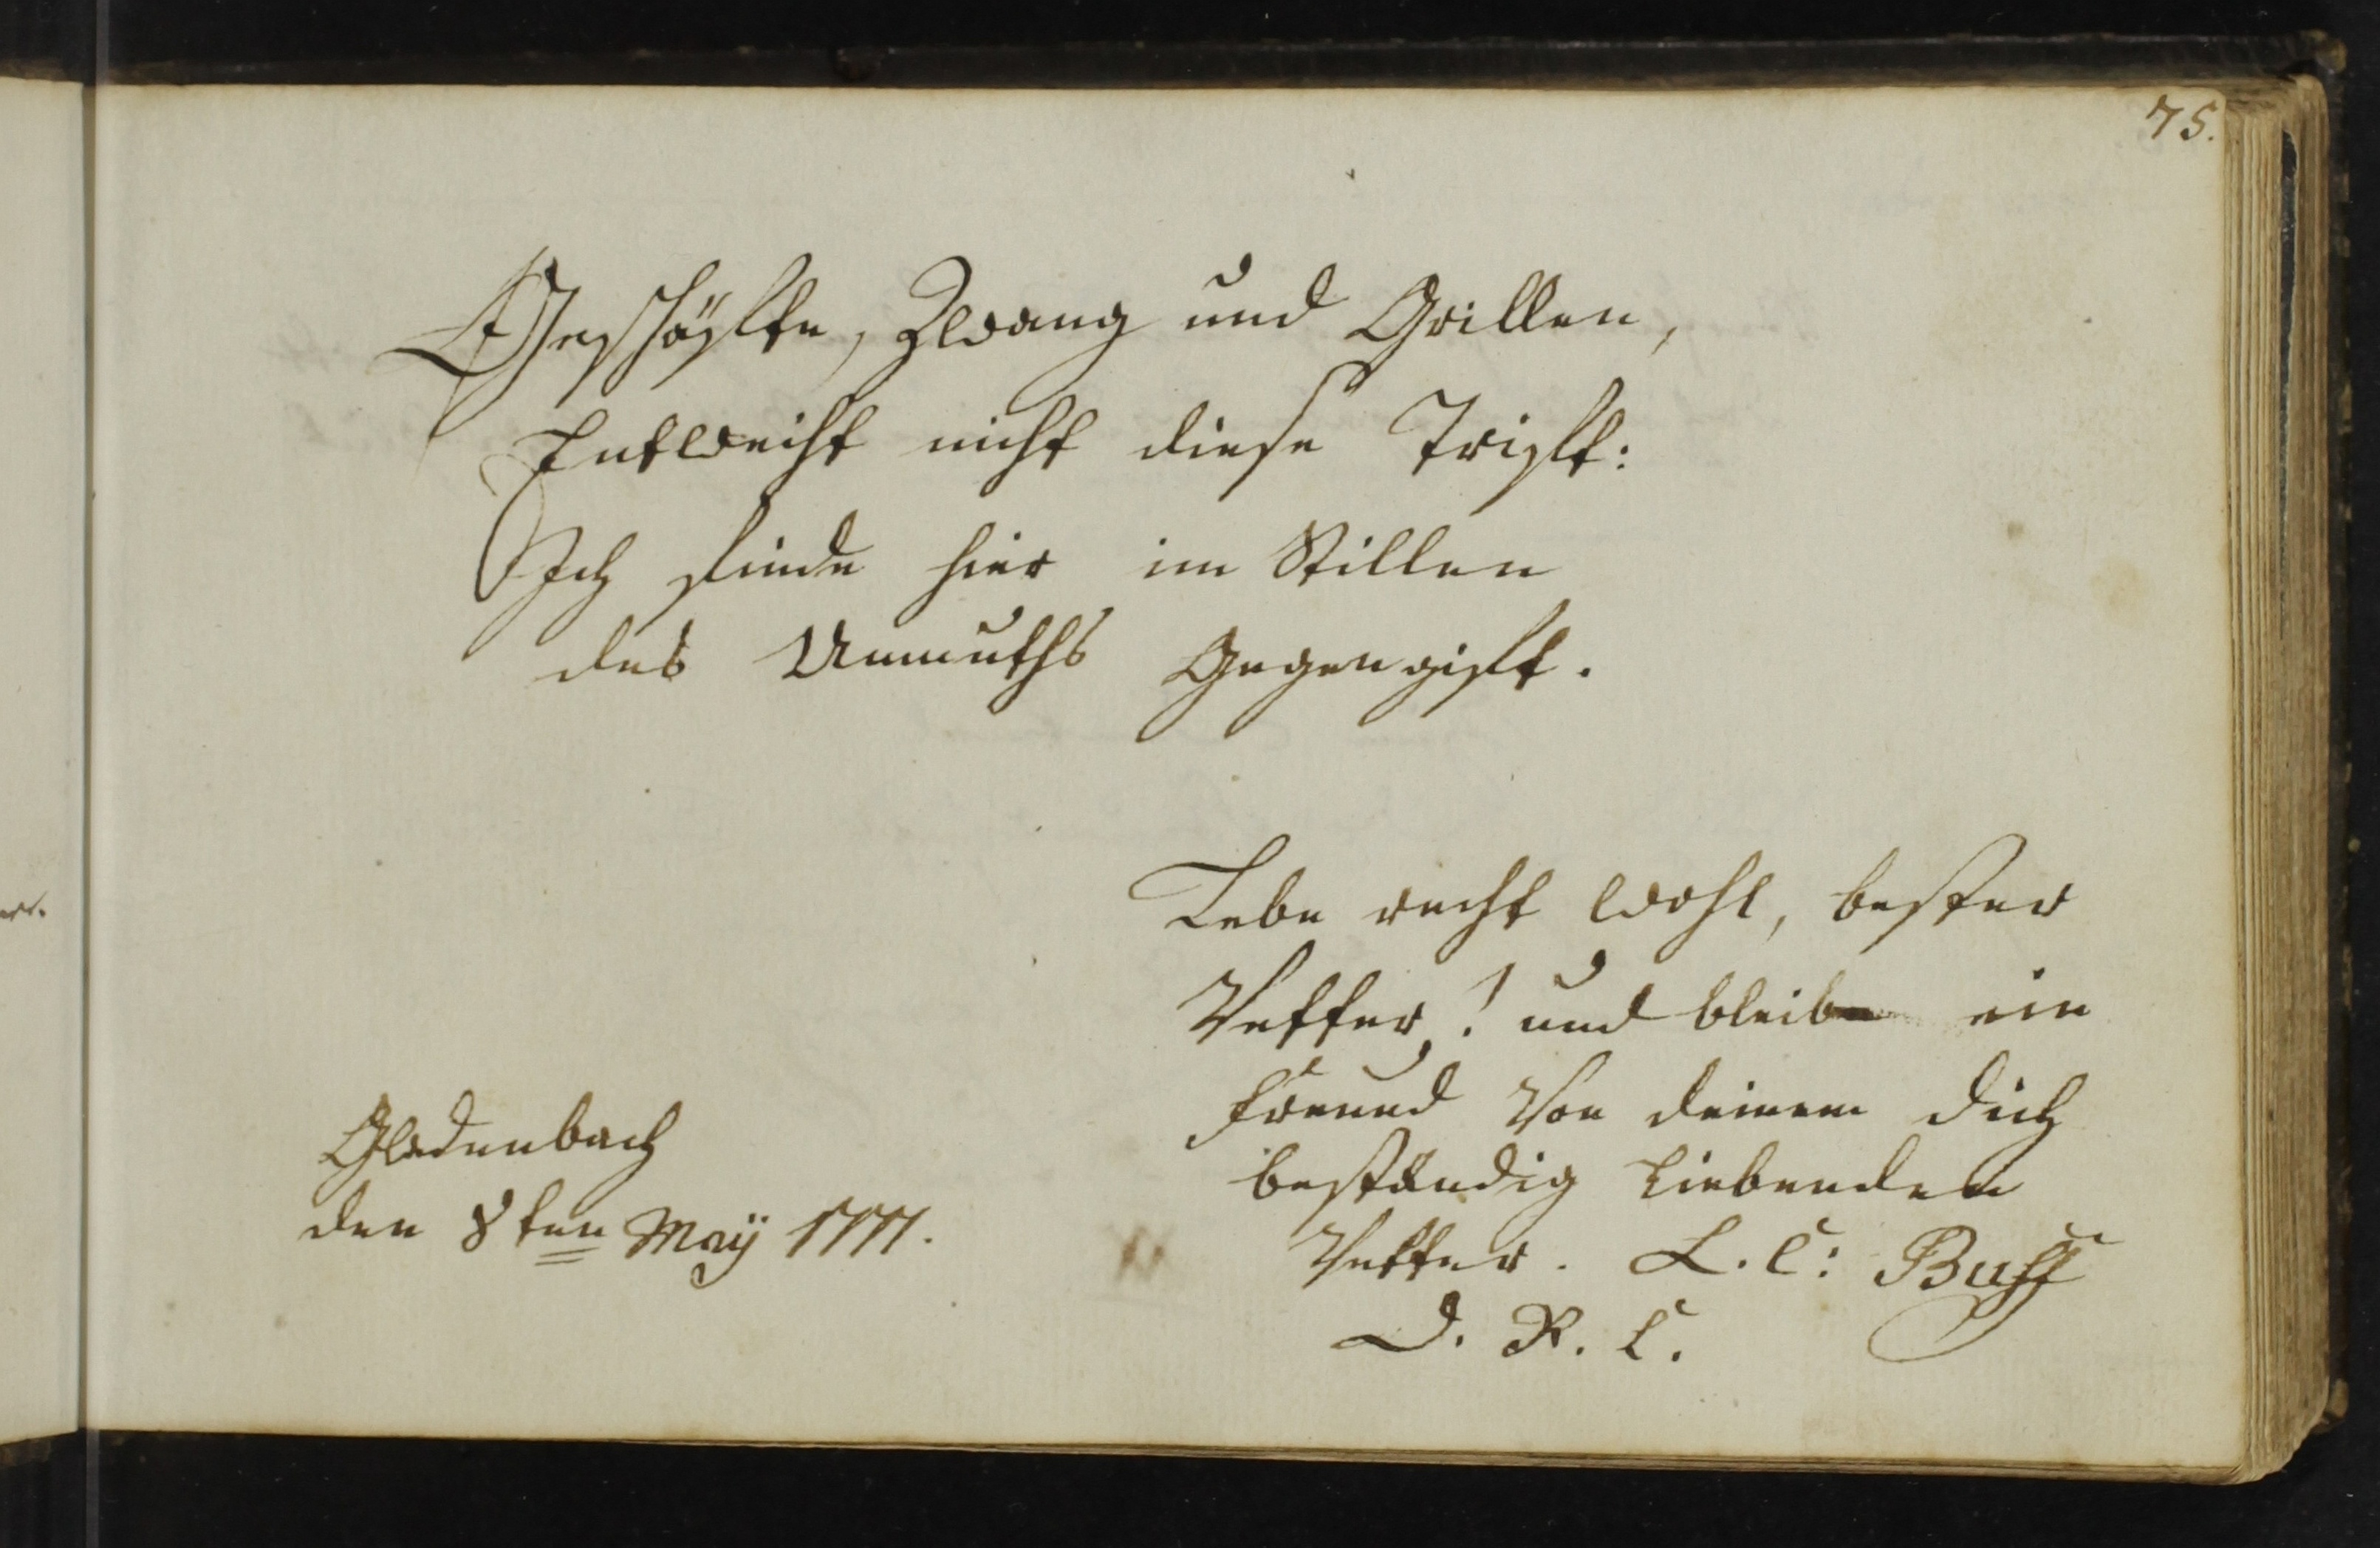 75.
Geschäfte, Zwang und Grillen,
Entweiht nicht diese Trift:
Ich finde hier im Stillen
des Unmuths Gegengift.
Lebe recht wohl, bester
Vetter! und bleibe ein
Freund von deinem dich
beständig Liebenden
Vetter. L. C: Buff
D. R. C.
Gladenbach
den 8ten May 1777.